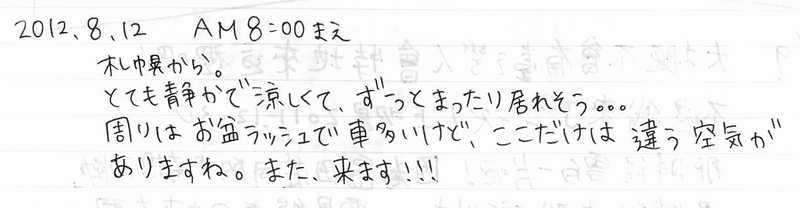 2012.8.12 AM8:00まえ
札幌から。
とても静かで涼しくて、ず～っとまったり居れそう...
周りはお盆ラッシュで車多いけど、ここだけは違う空気が
ありますね。また、来ます!!!